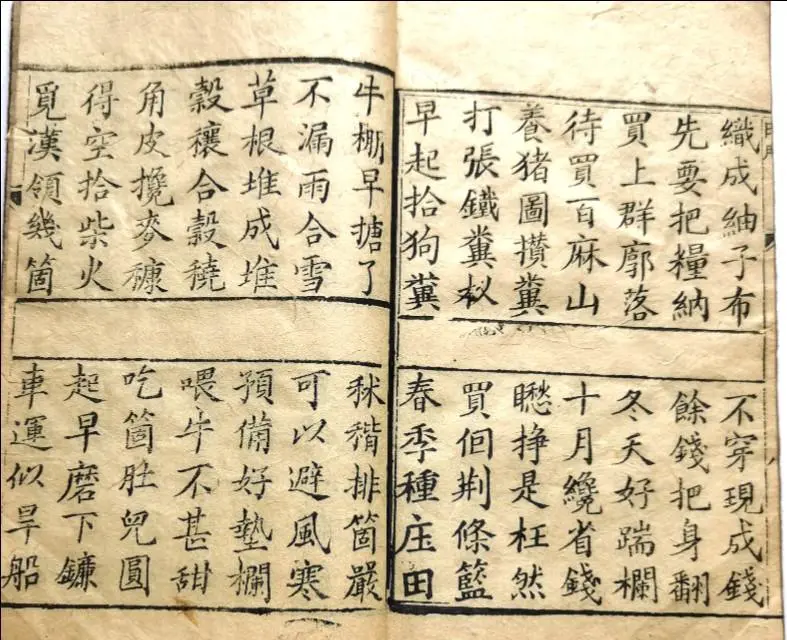 織成紬子布
不穿現成錢
先要把糧納
餘錢把身翻
買上群廓落
冬天好踹欄
待買百麻山
十月纔省錢
養猪圖攅糞
掙是枉然
打張鐵糞杴
買佪荆條籃
早起拾狗糞
春季種庄田
牛棚早搪了
秫稭排箇嚴
不漏雨合雪
可以避風寒
草根堆成堆
預備好墊欄
穀穰合穀穘
喂牛不甚甜
角皮攪麥糠
吃箇肚兒圓
得空拾柴火
起早磨下鐮
覓漢領幾箇
車運似旱船